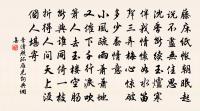 藤床紙帳朝眠起
說不盡無佳思沉
香斷續玉爐寒
伴我情懷如水笛
聲三弄梅心驚
破多少春情意
小風疏雨蕭蕭地
又催下千行淚吹
簫人去玉樓空腸
斷與誰同倚一枝
折得人間天上沒
個人堪寄
李清照詞孤雁兒